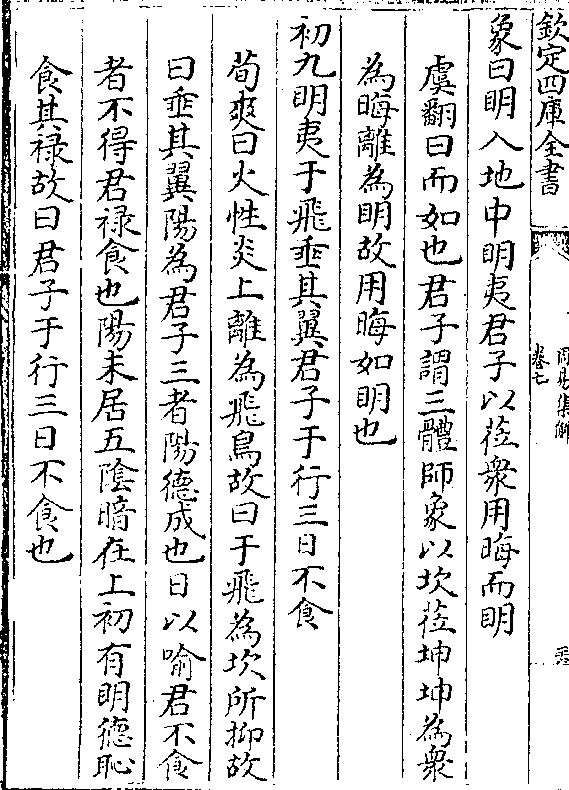 欽定四庫全書
周易集解
卷七
象曰明入地中明夷君子以莅衆用晦而明
虞翻曰而如也君子謂三體師象以坎莅坤坤為衆
為晦離為明故用晦如明也
初九明夷于飛垂其翼君子于行三日不食
荀爽曰火性炎上離為飛鳥故曰于飛為坎所抑故
曰垂其翼陽為君子三者陽德成也日以喻君不食
者不得君祿食也陽未居五陰暗在上初有明德恥
食其祿故曰君子于行三日不食也